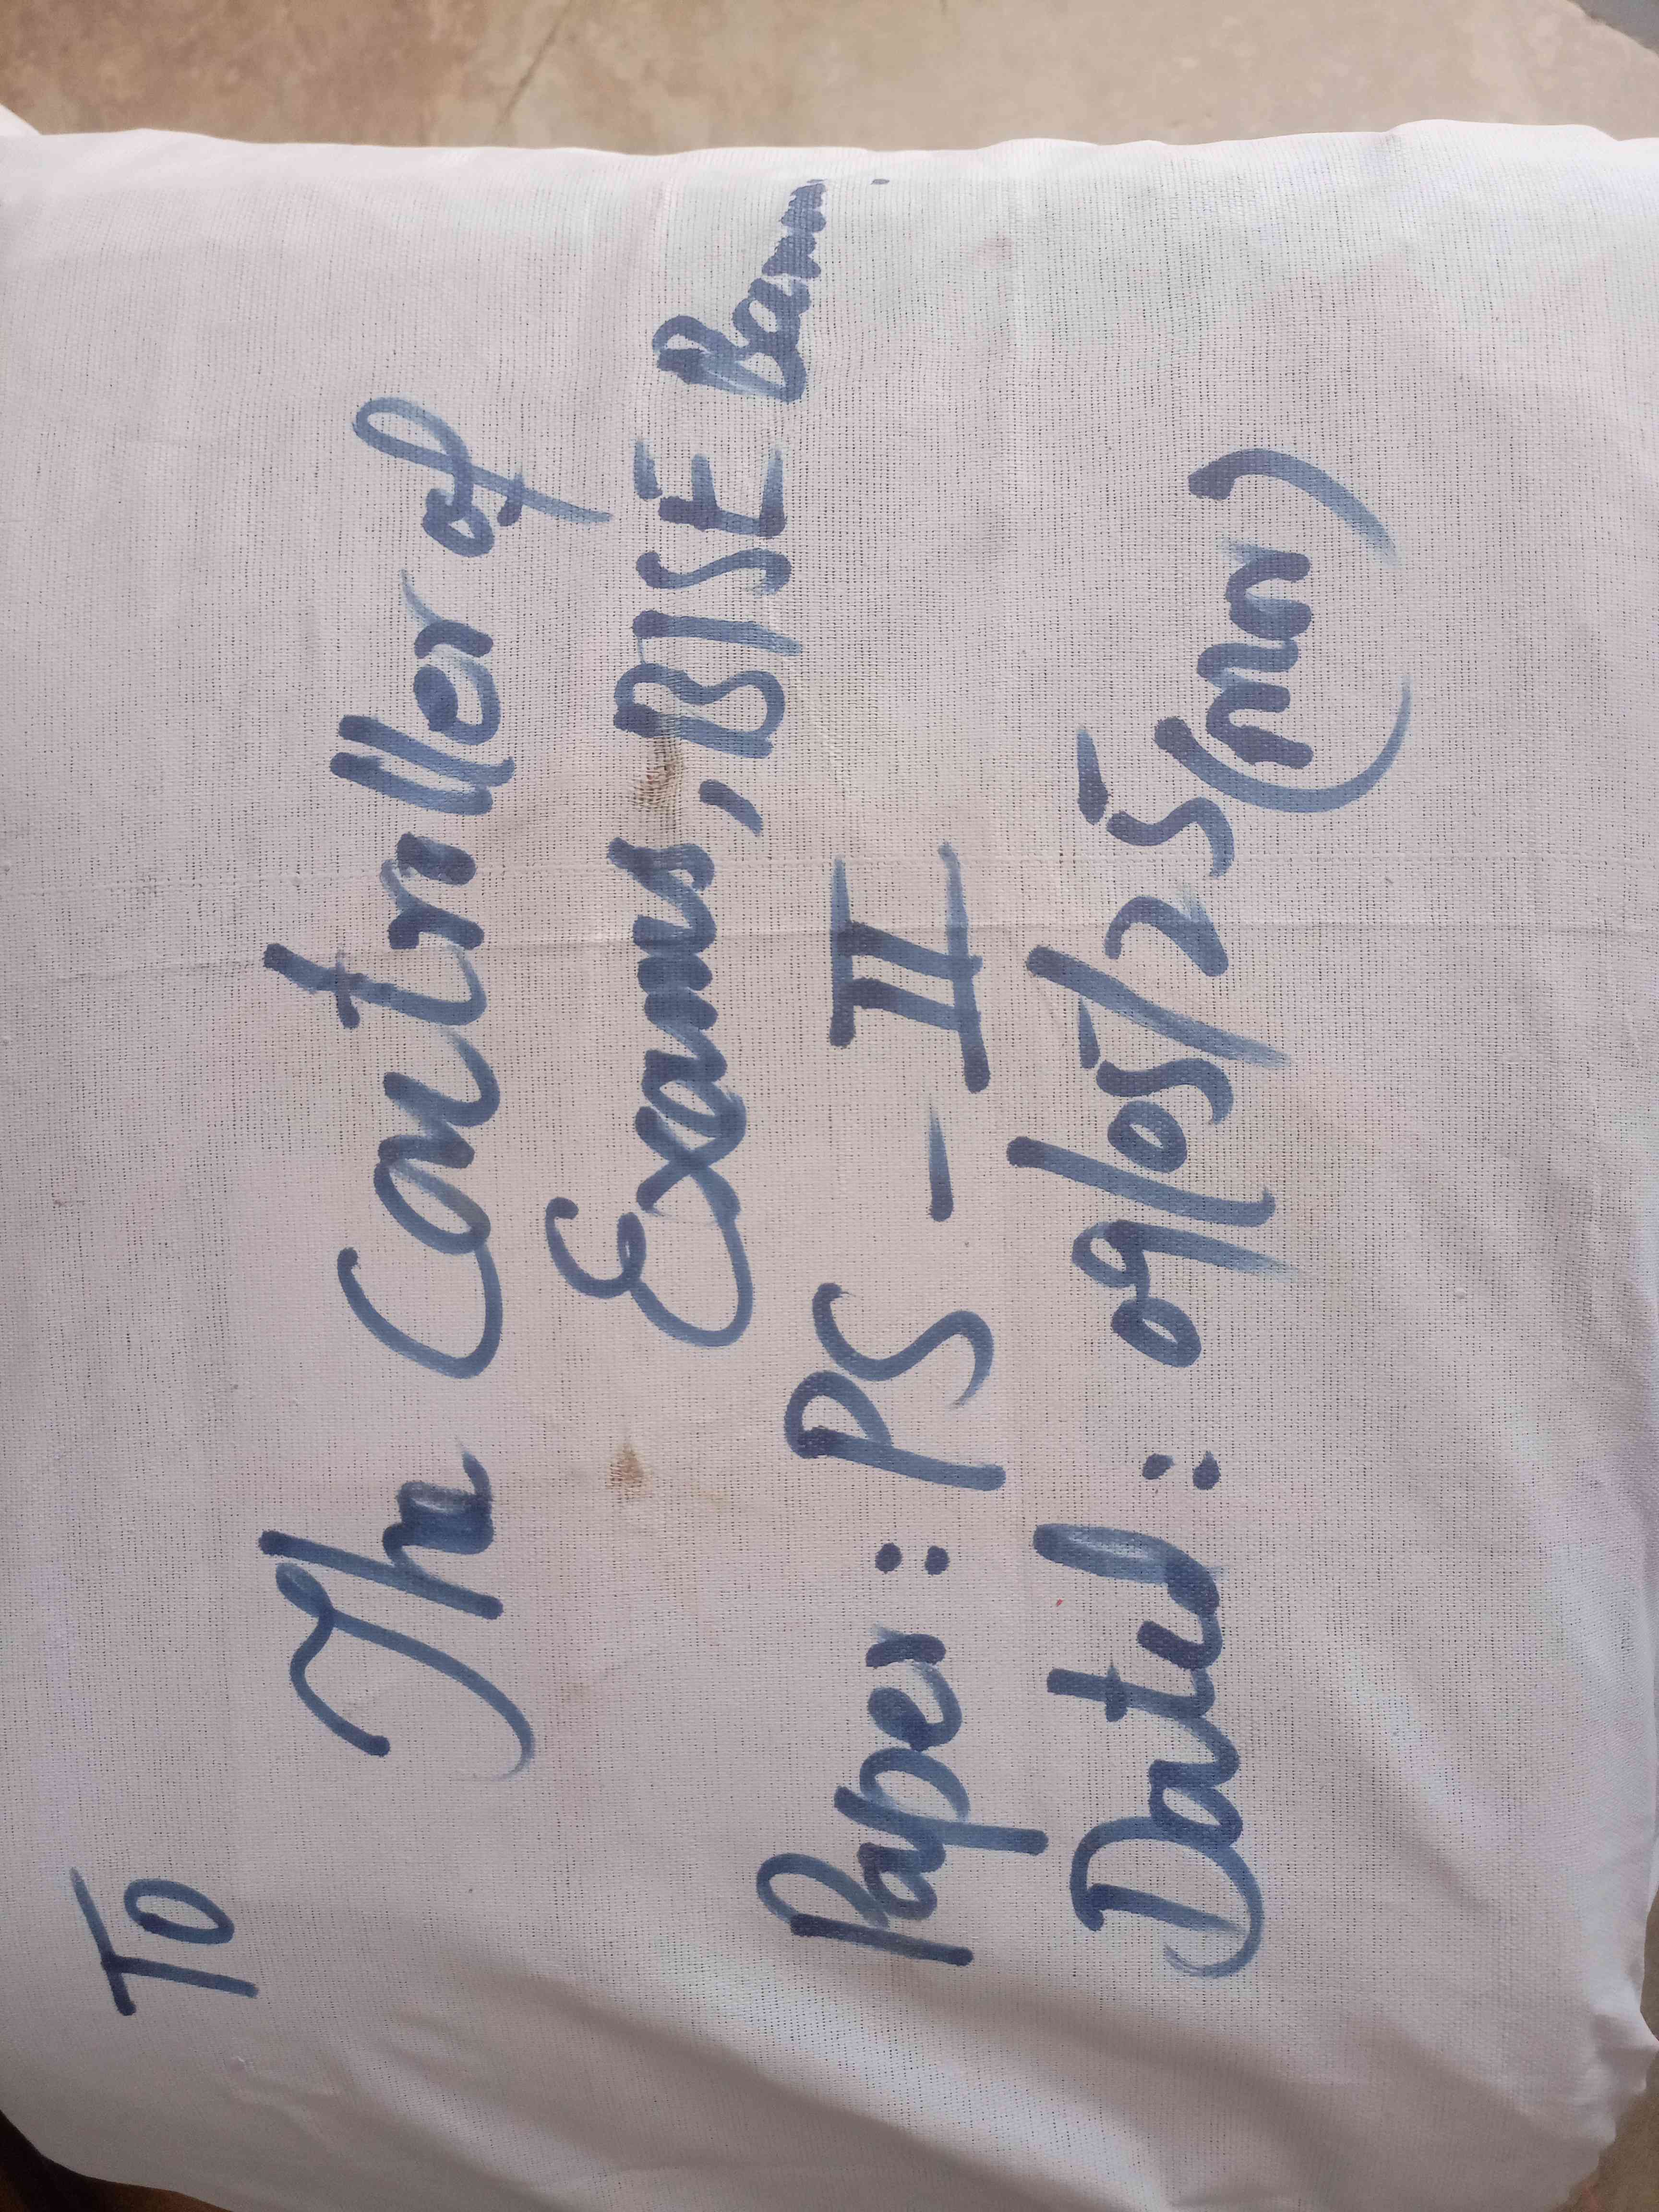 To
The Controller of
Exams, BISE Bannu.
Paper: PS - II
Dated: 09/05/25 (M)